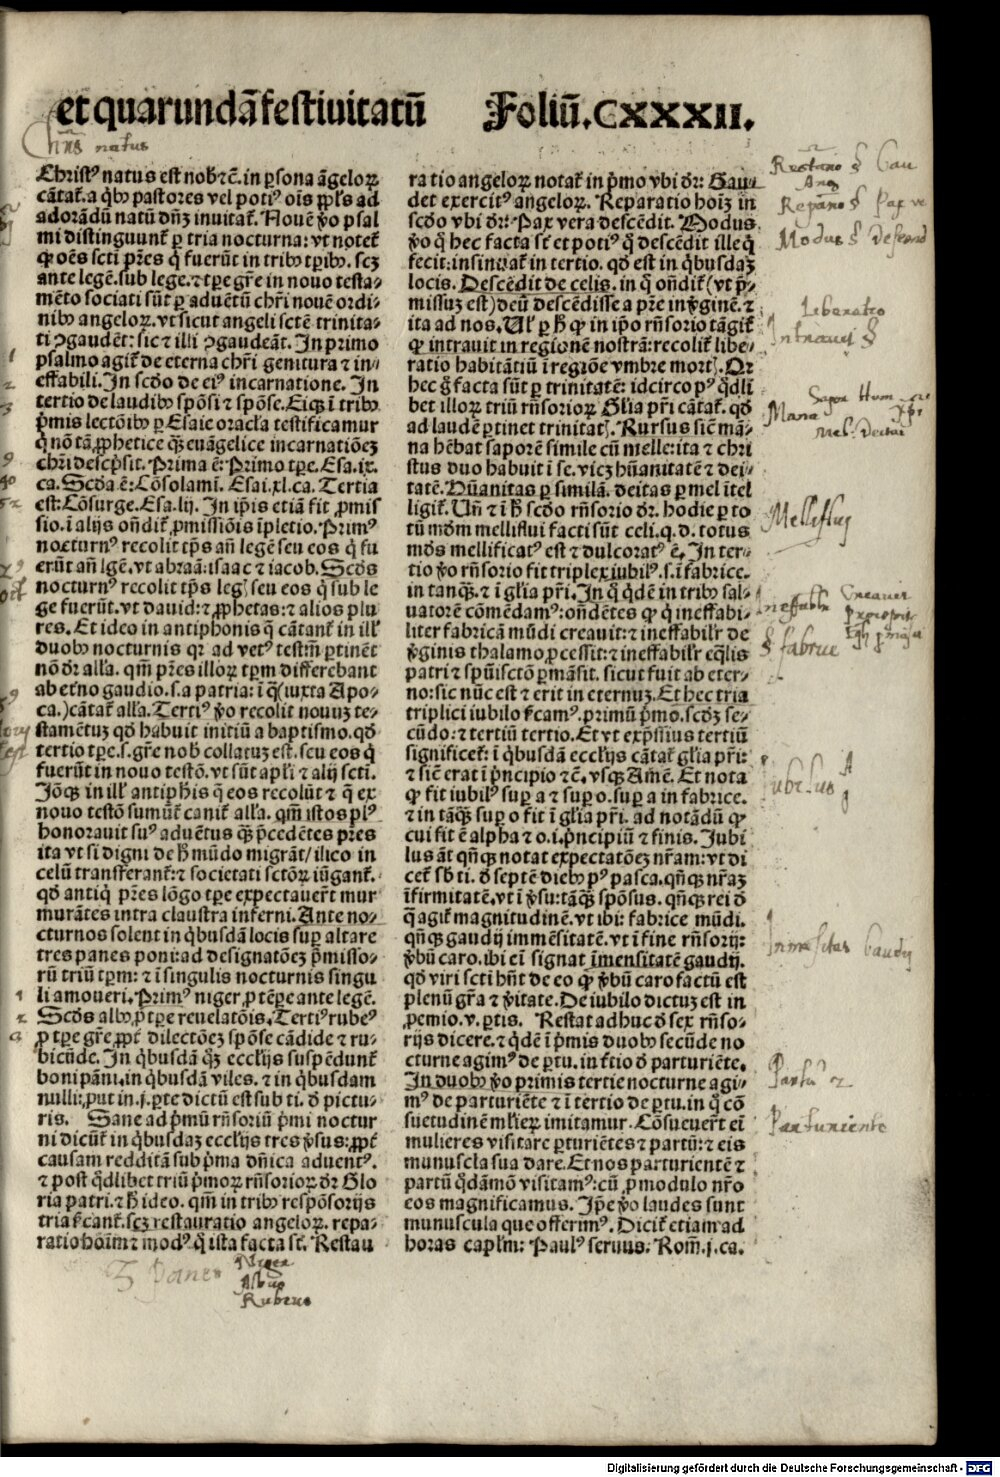 et quarundã festiuitatũ Foliũ. CXXXII.
natus
Christꝰ natus est nob̄ ⁊c̃. in ꝑsona ãgeloꝝ
cãtat᷑. a q̇bꝰ pastores vel potiꝰ oĩs ppl̃s ad
adorãdũ natũ dñȝ inuitat᷑. Nouẽ ꝟo psal
mi distinguunt᷑ ꝑ tria nocturna: vt notet᷑
ꝙ oẽs scti pr̃es q̇ fuerũt in tribꝰ tꝑibꝰ. scȝ
ante legẽ. sub lege. ⁊ tꝑe gr̃e in nouo testa⸗
mẽto sociati sũt ꝑ aduẽtũ chr̃i nouẽ ordi⸗
nibꝰ angeloꝝ. vt sicut angeli sctẽ trinita⸗
ti ꝯgaudẽt: sic ⁊ illi ꝯgaudeãt. In primo
psalmo agit᷑ de eterna chr̃i genitura ⁊ in⸗
effabili. In scd̃o de eiꝰ incarnatione. In
tertio de laudibꝰ spõsi ⁊ spõse. Eiqꝫ ĩ tribꝰ
p̃mis lectõibꝰ ꝑ Esaie oracl̃a testificamur
q̇ nõ tã ꝓphetice qȝ euãgelice incarnatiõeȝ
chr̃i descp̃sit. Prima ẽ: Primo tꝑe. Esa. ix.
ca. Scd̃a ẽ: Cõsolamĩ. Esai. xl. ca. Tertia
est: Cõsurge. Esa. lij. In ip̃is etiã fit ꝓmis
sio. ĩ alijs oñdit᷑ ꝓmissiõis ĩpletio. Primꝰ
nocturnꝰ recolit tp̃s añ legẽ seu eos q̇ fu
erũt añ lgẽ. vt abraã: isaac ⁊ iacob. Scd̃s
nocturnꝰ recolit tp̃s leg̃ seu eos q̇ sub le
ge fuerũt. vt dauid: ⁊ ꝓphetas: ⁊ alios plu
res. Et ideo in antiphonis q̃ cãtant᷑ in ill̃
duobꝰ nocturnis qr ad vetꝰ testm̃ ꝑtinẽt
nõ dr̃ all̃a. qm̃ pr̃es illoꝝ tꝑm differebant
ab et̃no gaudio. s. a patria: ĩ q̃ (iuxta Apo⸗
ca.) cãtat᷑ all̃a. Tertiꝰ ꝟo recolit nouuȝ te⸗
stamẽtuȝ qd̃ habuit initiũ a baptismo. qd̃
tertio tꝑe. s. gr̃e nob̄ collatuȝ est. seu eos q̇
fuerũt in nouo testõ. vt sũt apl̃i ⁊ alij scti.
Jõqꝫ in ill̃ antiphĩs q̃ eos recolũt ⁊ q̃ ex
nouo testõ sumũt᷑ canit᷑ all̃a. qm̃ istos plꝰ
honorauit suꝰ aduẽtus qȝ p̃cedẽtes pr̃es
ita vt si digni de h̃ mũdo migrãt / ilico in
celũ transferant᷑: ⁊ societati sctõꝝ iũgant᷑.
qd̃ antiq̇ pr̃es lõgo tꝑe expectauer̃t mur
murãtes intra claustra inferni. Ante no⸗
cturnos solent in q̇busdã locis suꝑ altare
tres panes poni: ad designatõeȝ p̃misso⸗
rũ triũ tꝑm: ⁊ ĩ singulis nocturnis singu
li amoueri. Primꝰ niger, ꝓ tẽꝑe ante legẽ.
Scd̃s albꝰ, ꝓ tꝑe reuelatõis. Tertiꝰ rubeꝰ
ꝓ tꝑe gr̃e ꝓpt̃ dilectõeȝ spõse cãdide ⁊ ru⸗
bicũde. In q̇busdã qȝ eccl̃ijs suspẽdunt᷑
boni pãni. in q̇busdã viles. ⁊ in q̇busdam
nulli: ꝓut in. j. ꝑte dictũ est sub ti. ð pictu⸗
ris. Sane ad p̃mũ rñsoriũ p̃mi noctur
ni dicũt᷑ in q̇busdaȝ eccl̃ijs tres ꝟsus: ꝓpt̃
causam redditã sub p̃ma dñica aduentꝰ.
⁊ post q̃dlibet triũ p̃moꝝ rñsorioꝝ dr̃ Glo
ria patri. ⁊ h̃ ideo. qm̃ in tribꝰ respõsorijs
tria ẜcant᷑. scȝ restauratio angeloꝝ. repa⸗
ratio hoĩm ⁊ modꝰ q̇ ista facta st̃. Restau
3 panes Niger
Albus
Rubeus
ratio angeloꝝ notat᷑ in p̃mo vbi dr̃: Gau⸗
det exercitꝰ angeloꝝ. Reparatio hoĩȝ in
scd̃o vbi dr̃: Pax vera descẽdit. Modus
ꝟo q̇ hec facta st̃ et potiꝰ q̇ descẽdit ille q̇
fecit: insinuat᷑ in tertio. qd̃ est in q̇busdaȝ
locis. Descẽdit de celis. in q̇ oñdit᷑ (vt p̃⸗
missuȝ est) deũ descẽdisse a pr̃e in ꝟginẽ. ⁊
ita ad nos. Ul̃ ꝑ h̃ ꝙ in ip̃o rñsorio tãgit᷑
ꝙ intrauit in regionẽ nostrã: recolit᷑ libe⸗
ratio habitãtiũ ĩ regiõe vmbre mort̃. Qr
hec g̃ facta sũt ꝑ trinitatẽ: idcirco pꝰ q̃dli
bet illoꝝ triũ rñsorioꝝ Gl̃ia pr̃i cãtat᷑. qd̃
ad laudẽ ꝑtinet trinitat̃. Rursus siẽ mã⸗
na hẽbat saporẽ simile cũ melle: ita ⁊ chri
stus duo habuit ĩ se. vicȝ hũanitatẽ ⁊ dei⸗
tatẽ. Hũanitas ꝑ similã. deitas ꝑ mel ĩtel
ligit᷑. Uñ ⁊ ĩ h̃ scd̃o rñsorio dr̃. hodie ꝑ to
tũ mũdm mellflui facti sũt celi. q. d. totus
mũds mellificatꝰ est ⁊ dulcoratꝰ ẽ. In ter⸗
tio ꝟo rñsorio fit triplex iubilꝰ. s. ĩ fabrice.
in tanqȝ. ⁊ ĩ gl̃ia pr̃i. In q̇ q̃dẽ in tribꝰ sal⸗
uatorẽ cõmẽdamꝰ: oñdẽtes ꝙ q̇ ineffabi⸗
liter fabricã mũdi creauit: ⁊ ineffabil̃r de
ꝟginis thalamo ꝓcessit: ⁊ ineffabil̃r eq̃lis
patri ⁊ spũisctõ ꝑmãsit. sicut fuit ab eter⸗
no: sic nũc est ⁊ erit in eternuȝ. Et hec tria
triplici iubilo ẜcamꝰ. primũ p̃mo. scd̃ȝ se⸗
cũdo: ⁊ tertiũ tertio. Et vt exp̃ssius tertiũ
significet᷑: ĩ q̇busdã eccl̃ijs cãtat᷑ gl̃ia pr̃i:
⁊ siẽ erat ĩ p̃ncipio ⁊c̃. vsqꝫ Amẽ. Et nota
ꝙ fit iubilꝰ suꝑ a ⁊ suꝑ o. suꝑ a in fabrice.
⁊ in tãqȝ suꝑ o fit ĩ gl̃ia pr̃i. ad notãdũ ꝙ
cui fit ẽ alpha ⁊ o. i. p̃ncipiũ ⁊ finis. Jubi
lus ãt qñqꝫ notat expectatõeȝ nr̃am: vt di
cet᷑ sb̃ ti. ð septẽ diebꝰ pꝰ pasca. qñqꝫ nr̃aȝ
ĩfirmitatẽ. vt ĩ ꝟsu: tãqȝ spõsus. qñqꝫ rei ð
q̃ agit᷑ magnitudinẽ. vt ibi: fabrice mũdi.
qñqꝫ gaudij immẽsitatẽ. vt ĩ fine rñsorij:
ꝟbũ caro. ibi eĩ signat ĩmensitatẽ gaudij.
qd̃ viri scti hñt de eo ꝙ ꝟbũ caro factũ est
plenũ gr̃a ⁊ ꝟitate. De iubilo dictuȝ est in
ꝓemio. v. ꝑtis. Restat adhuc ð sex rñso⸗
rijs dicere. ⁊ q̃dẽ ĩ p̃mis duobꝰ secũde no
cturne agimꝰ de ꝑtu. in t̃tio ð parturiẽte.
In duobꝰ ꝟo primis tertie nocturne agi⸗
mꝰ de parturiẽte ⁊ ĩ tertio de ꝑtu. in q̇ cõ
suetudinẽ ml̃ieꝝ imitamur. Cõsueuer̃t eĩ
mulieres visitare ꝑturiẽtes ⁊ partũ: ⁊ eis
munuscla sua dare. Et nos parturientẽ ⁊
partũ q̃dãmõ visitamꝰ: cũ ꝓ modulo nr̃o
eos magnificamus. Jp̃e ꝟo laudes sunt
munuscula que offerimꝰ. Dicit᷑ etiam ad
horas capl̃m: Paulꝰ seruus. Rom̃. j. ca.
Liberatio
Mana
Mellifluj
Gaudij
Parturiente
Digitalisierung gefördert durch die Deutsche Forschungsgemeinschaft - DFG